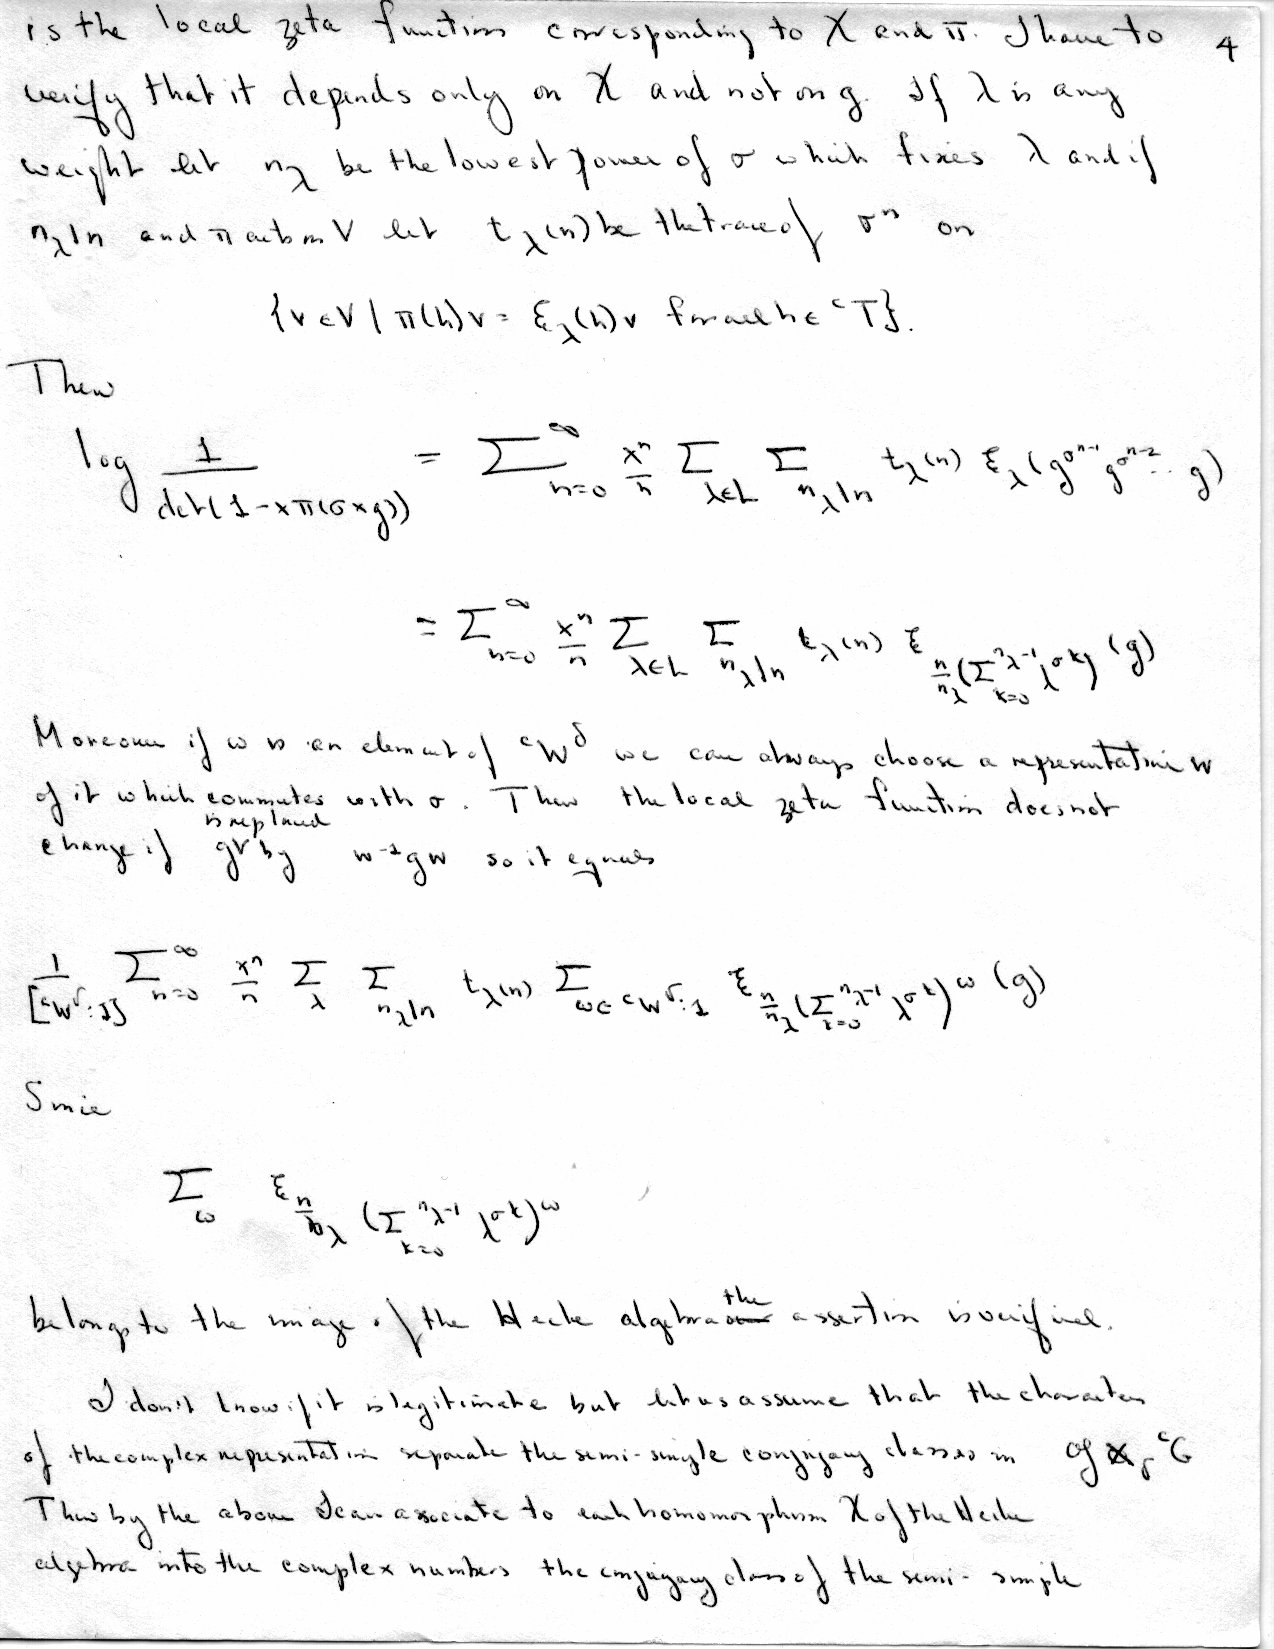 is the local zeta function corresponding to χ and π. I have to 4
verify that it depends only on χ and not on g. If λ is any
weight let n_λ be the lowest power of σ which fixes λ and if
n_λ|n and π acts on V let t_λ(n) be the trace of σ^n on
{v ∈ V | π(h)v = ξ_λ(h)v for all h ∈ ^cT}.
Then
log 1/det(1 - xπ(σ × g)) = Σ_{n=0}^∞ x^n/n Σ_{λ∈L} Σ_{n_λ|n} t_λ(n) ξ_λ(g^{σ^{n-1}} g^{σ^{n-2}} ... g)
= Σ_{n=0}^∞ x^n/n Σ_{λ∈L} Σ_{n_λ|n} t_λ(n) ξ_{n/n_λ (Σ_{k=0}^{n_λ-1} λ^{σ^k})}(g)
Moreover if ω is an element of ^cW^δ we can always choose a representative w
of it which commutes with σ. Then the local zeta function does not
change if g is replaced by w^{-1}gw so it equals
1/[^cW^δ:1] Σ_{n=0}^∞ x^n/n Σ_λ Σ_{n_λ|n} t_λ(n) Σ_{ω∈^cW^δ:1} ξ_{n/n_λ (Σ_{k=0}^{n_λ-1} λ^{σ^k})^ω}(g)
Since
Σ_ω ξ_{n/n_λ (Σ_{k=0}^{n_λ-1} λ^{σ^k})^ω}
belongs to the image of the Hecke algebra the assertion is verified.
I don't know if it is legitimate but let us assume that the characters
of the complex representation separate the semi-simple conjugacy classes in 𝔤 ×_δ ^cG
Then by the above I can associate to each homomorphism χ of the Hecke
algebra into the complex numbers the conjugacy class of the semi-simple